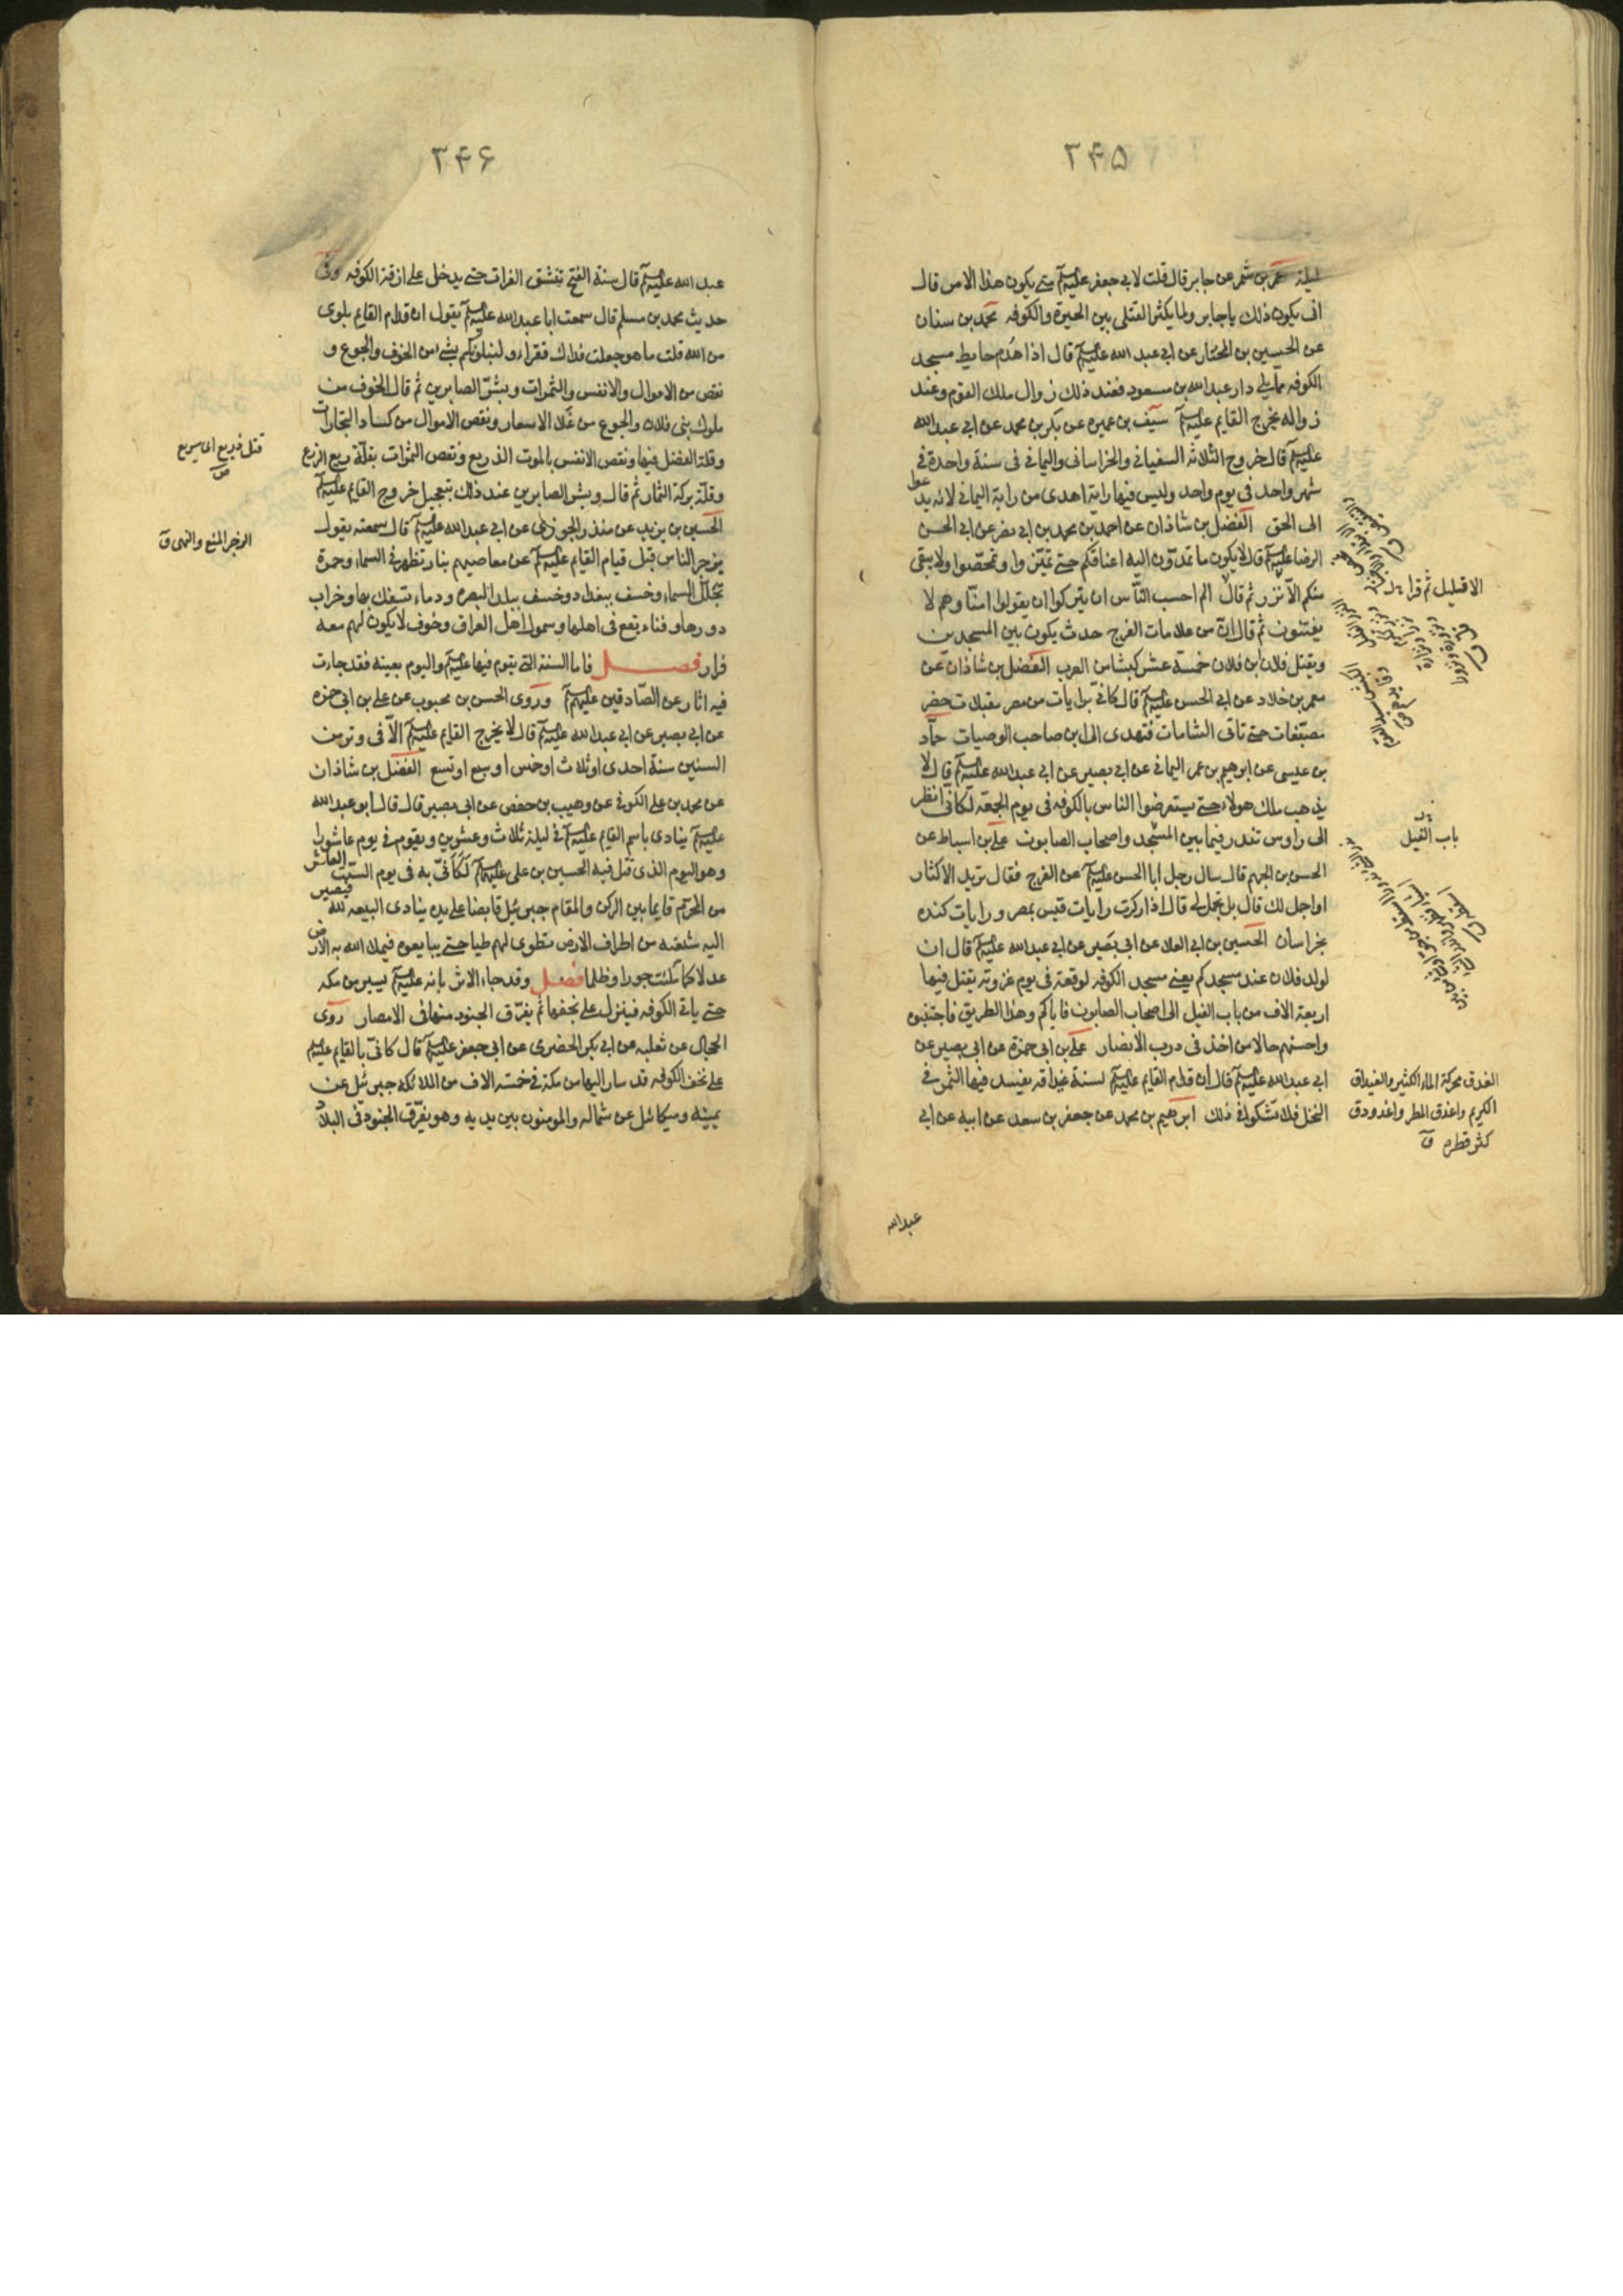 ٣۴۵
ليلة عمر بن شمر عن جابر قال قلت لابي جعفر عليه السلم متى يكون هذا الامر قال
انى يكون ذلك يا جابر ولما يكثر القتلى بين الحيرة والكوفه محمد بن سنان
عن الحسين بن المختار عن ابي عبد الله عليه السلم قال اذا هدم حايط مسجد
الكوفه مما يلي دار عبدالله بن مسعود فعند ذلك زوال ملك القوم وعند
زواله يخرج القايم عليه السلم سيف بن عميره عن بكر بن محمد عن ابي عبد الله
عليه السلم قال خروج الثلاثه السفياني والخراساني واليماني في سنة واحدة في
شهر واحد في يوم واحد وليس فيها راية اهدى من راية اليماني لانه يدعوا
الى الحق الفضل بن شاذان عن احمد بن محمد بن ابي نصر عن ابي الحسن
الرضا عليه السلم قال لا يكون ما تمدون اليه اعناقكم حتى تميزوا وتمحصوا ولا يبقى
منكم الا نزر ثم قال الم احسب الناس ان يتركوا ان يقولوا امنا وهم لا
يفتنون ثم قال ان من علامات الفرج حدث يكون بين المسجدين
ويقتل فلان بن فلان خمسة عشر كبشا من العرب الفضل بن شاذان عن
معمر بن خلاد عن ابي الحسن عليه السلم قال كاني برايات من مصر مقبلات خضر
مصبغات حتى تاتى الشامات فتهدى الى ابن صاحب الوصيات حماد
بن عيسى عن ابرهيم بن عمر اليماني عن ابي بصير عن ابي عبد الله عليه السلم قال لا
يذهب ملك هولاء حتى يستعرضوا الناس بالكوفه في يوم الجمعة لكاني انظر
الى راوس تندر فيما بين المسجد واصحاب الصابون علي بن اسباط عن
الحسن بن الجهم قال سال رجل ابا الحسن عليه السلم عن الفرج فقال تريد الاكثار
او اجمل لك قال بل تجمل لي قال اذا ركزت رايات قيس بمصر ورايات كنده
بخراسان الحسين بن ابي العلا عن ابي بصير عن ابي عبد الله عليه السلم قال ان
لولد فلان عند مسجدكم يعني مسجد الكوفه لوقعة في يوم عروبة يقتل فيها
اربعة الاف من باب الفيل الى اصحاب الصابون فاياكم وهذا الطريق فاجتنبوه
واحسنهم حالا من اخذ في درب الانصار علي بن ابي حمزة عن ابي بصير عن
ابي عبد الله عليه السلم قال ان قدام القايم عليه السلم لسنة غيداقه يفسد فيها الثمر في
النخل فلا تشكوا في ذلك ابرهيم بن محمد عن جعفر بن سعد عن ابيه عن ابي
الا قليل ثم قرا
باب الفيل
الغدق محركة الماء الكثير والغيداق
الكريم واغدق المطر واغدودق
كثر قطره ق
عبدالله
٣۴۶
عبد الله عليه السلم قال سنة الفتح تنشق الفرات حتى يدخل على ازقة الكوفه وفي
حديث محمد بن مسلم قال سمعت ابا عبد الله عليه السلم يقول ان قدام القايم بلوى
من الله قلت ما هو جعلت فداك فقرا ولنبلونكم بشيء من الخوف والجوع و
نقص من الاموال والانفس والثمرات وبشر الصابرين ثم قال الخوف من
ملوك بني فلان والجوع من غلا الاسعار ونقص الاموال من كساد التجارات
وقلة الفضل فيها ونقص الانفس بالموت الذريع ونقص الثمرات بقلة ريع الزرع
وقلة بركة الثمار ثم قال وبشر الصابرين عند ذلك بتعجيل خروج القايم عليه السلم
الحسين بن يزيد عن منذر الجوزي عن ابي عبد الله عليه السلم قال سمعته يقول
يزجر الناس قبل قيام القايم عليه السلم عن معاصيهم بنار تظهر في السماء وحمرة
تجلل السماء وخسف ببغداد وخسف ببلد البصره ودماء تسفك بها وخراب
دورها وفناء يقع في اهلها وشمول اهل العراق وخوف لا يكون لهم معه
قرار فصل فاما السنة التي يقوم فيها عليه السلم واليوم بعينه فقد جارت
فيه اثار عن الصادقين عليهم السلم وروى الحسن بن محبوب عن علي بن ابي حمزه
عن ابي بصير عن ابي عبد الله عليه السلم قال لا يخرج القايم عليه السلم الا في وتر من
السنين سنة احدى او ثلاث او خمس او سبع او تسع الفضل بن شاذان
عن محمد بن علي الكوفي عن وهيب بن حفص عن ابي بصير قال قال ابو عبد الله
عليه السلم ينادى باسم القايم عليه السلم في ليلة ثلاث وعشرين ويقوم في يوم عاشورا
وهو اليوم الذي قتل فيه الحسين بن علي عليهما السلم لكاني به في يوم السبت العاشر
من المحرم قايما بين الركن والمقام جبرئيل قابضا على يده ينادى البيعه لله فيصير
اليه شيعته من اطراف الارض تطوى لهم طيا حتى يبايعوه فيملا الله به الارض
عدلا كما ملئت جورا وظلما فصل وقد جاء الاثر بانه عليه السلم يسير من مكه
حتى ياتي الكوفه فينزل على نجفها ثم يفرق الجنود منها في الامصار روى
الحجال عن ثعلبه عن ابي بكر الحضرمي عن ابي جعفر عليه السلم قال كاني بالقايم عليه السلم
على نجف الكوفه قد سار اليها من مكة في خمسه الاف من الملائكه جبرئيل عن
يمينه وميكائيل عن شماله والمومنون بين يديه وهو يفرق الجنود في البلاد
قتل ذريع اى سريع
ص
الزجر المنع والنهى ق